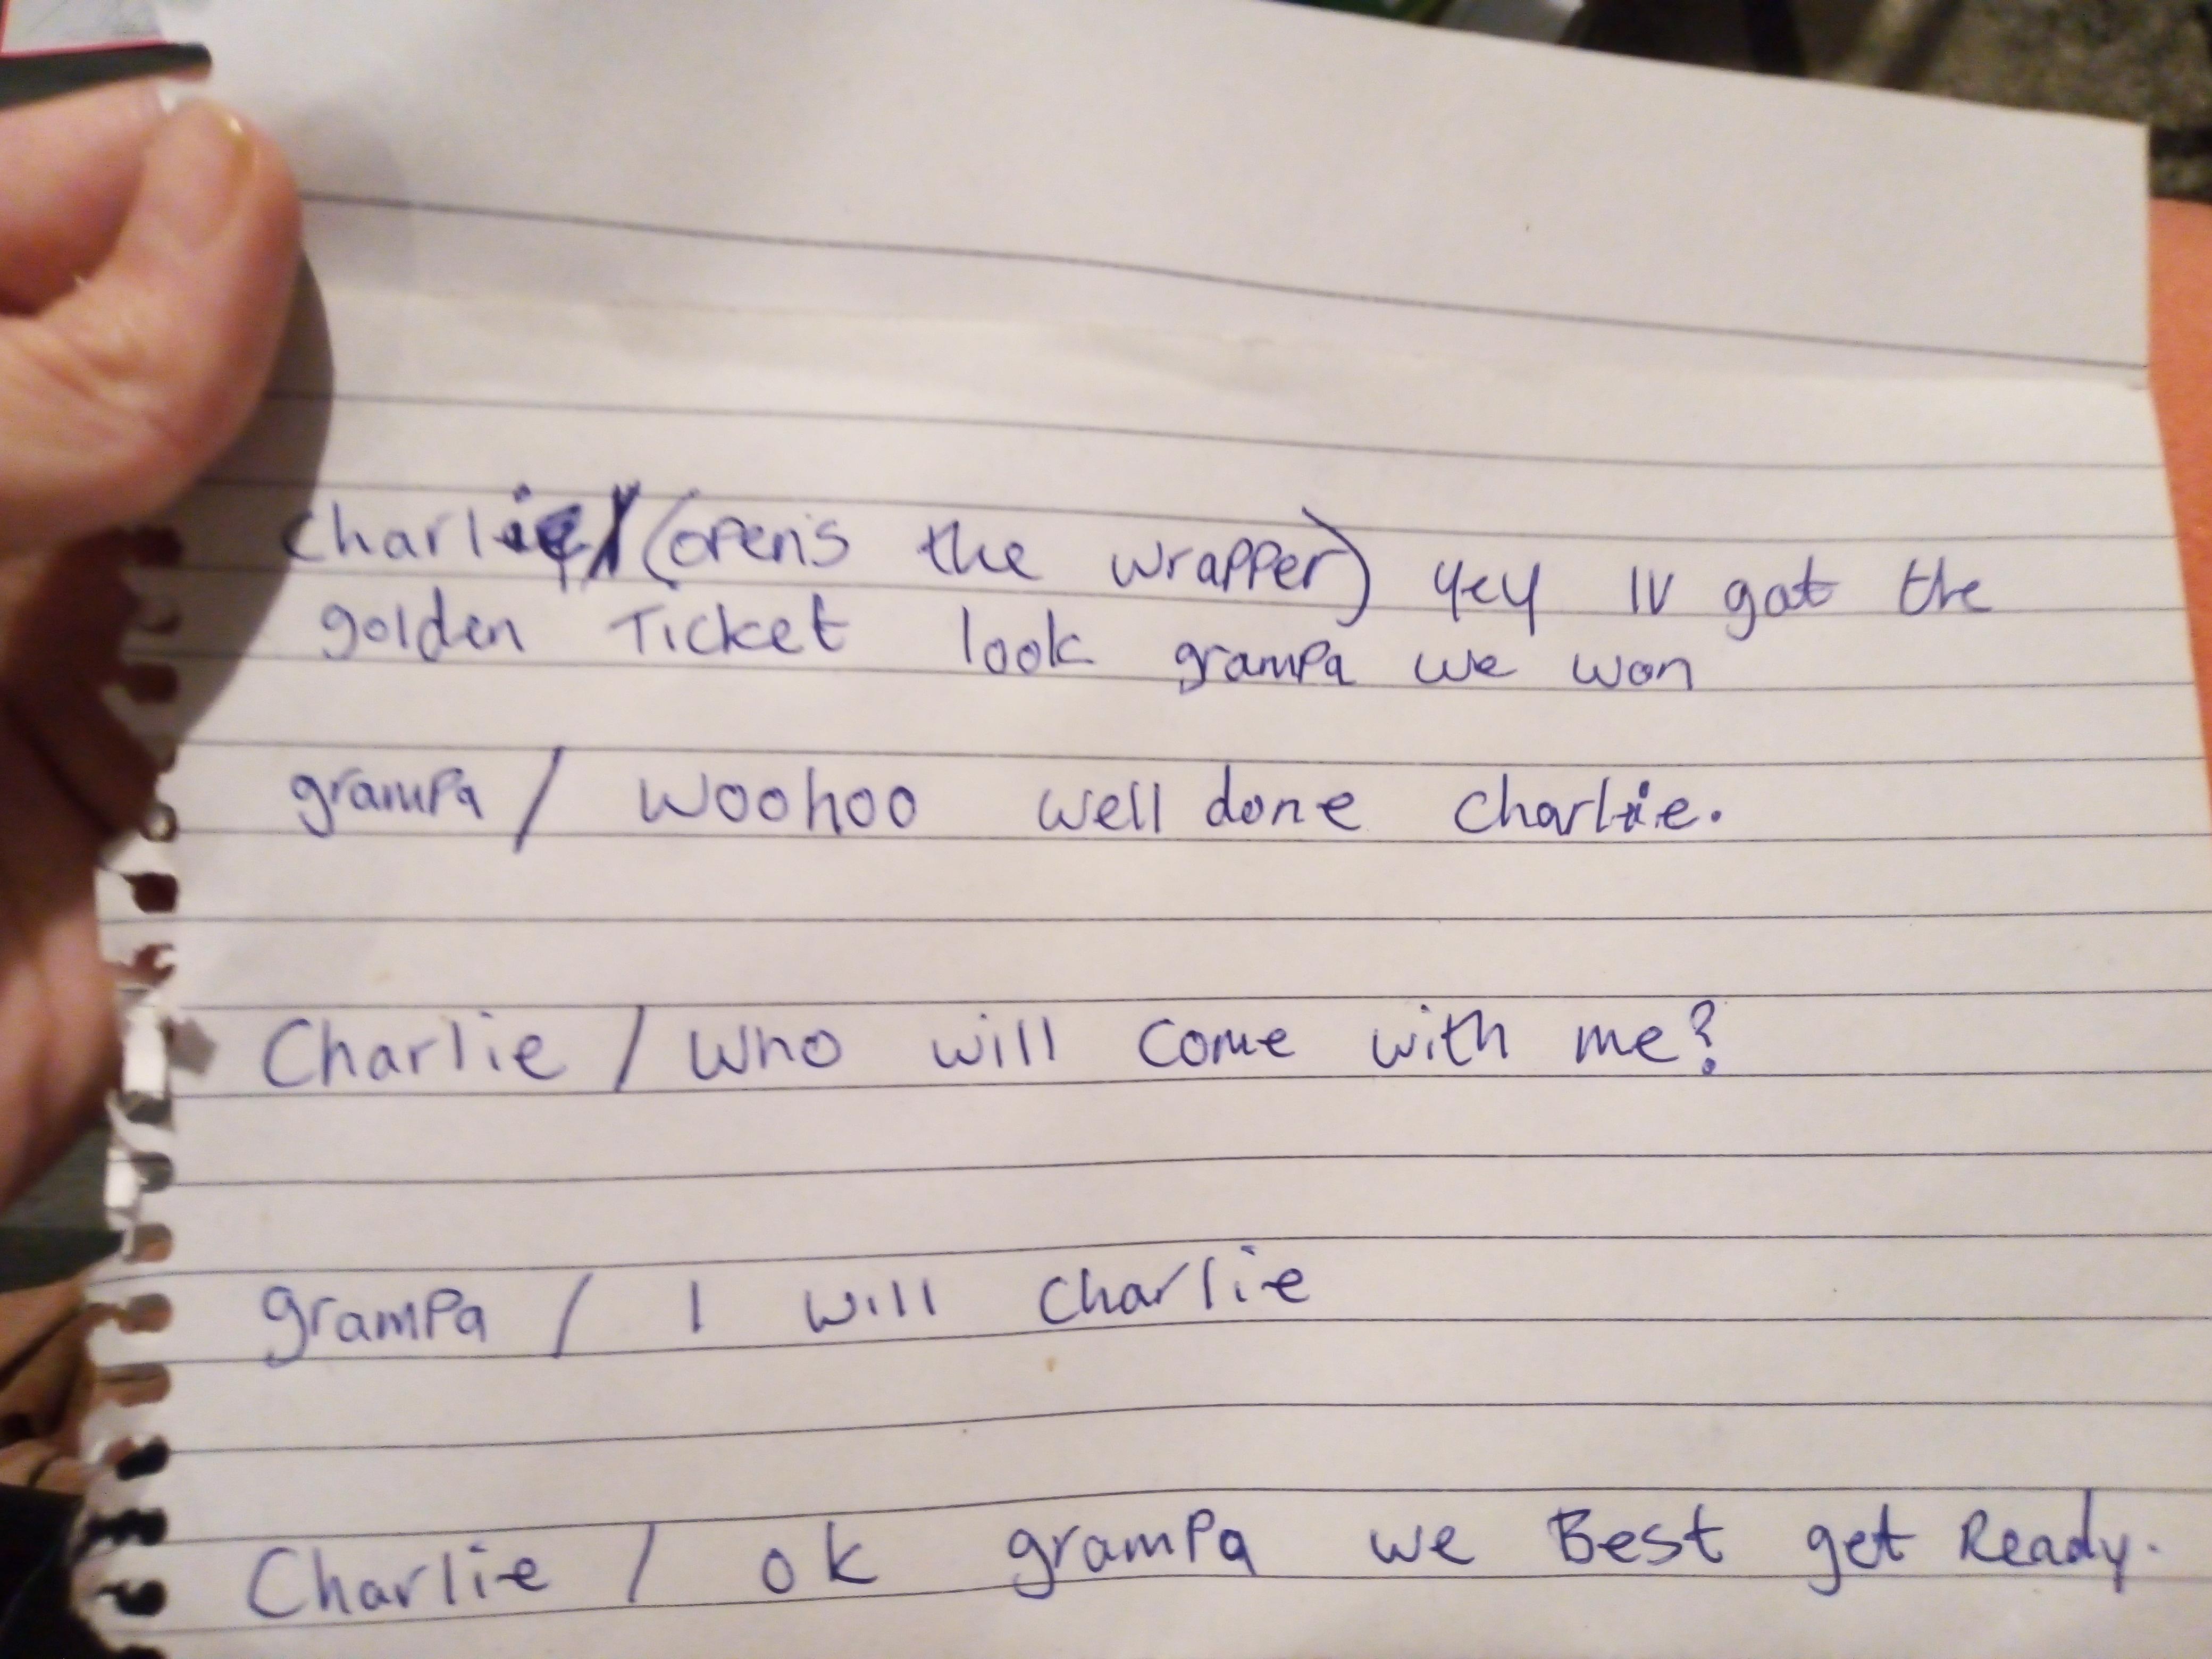 Charlie/ (opens the wrapper) yey IV got the
golden Ticket look grampa we won
grampa / Woohoo well done Charlie.
Charlie / Who will come with me?
grampa / I will Charlie
Charlie / ok grampa we Best get Ready.